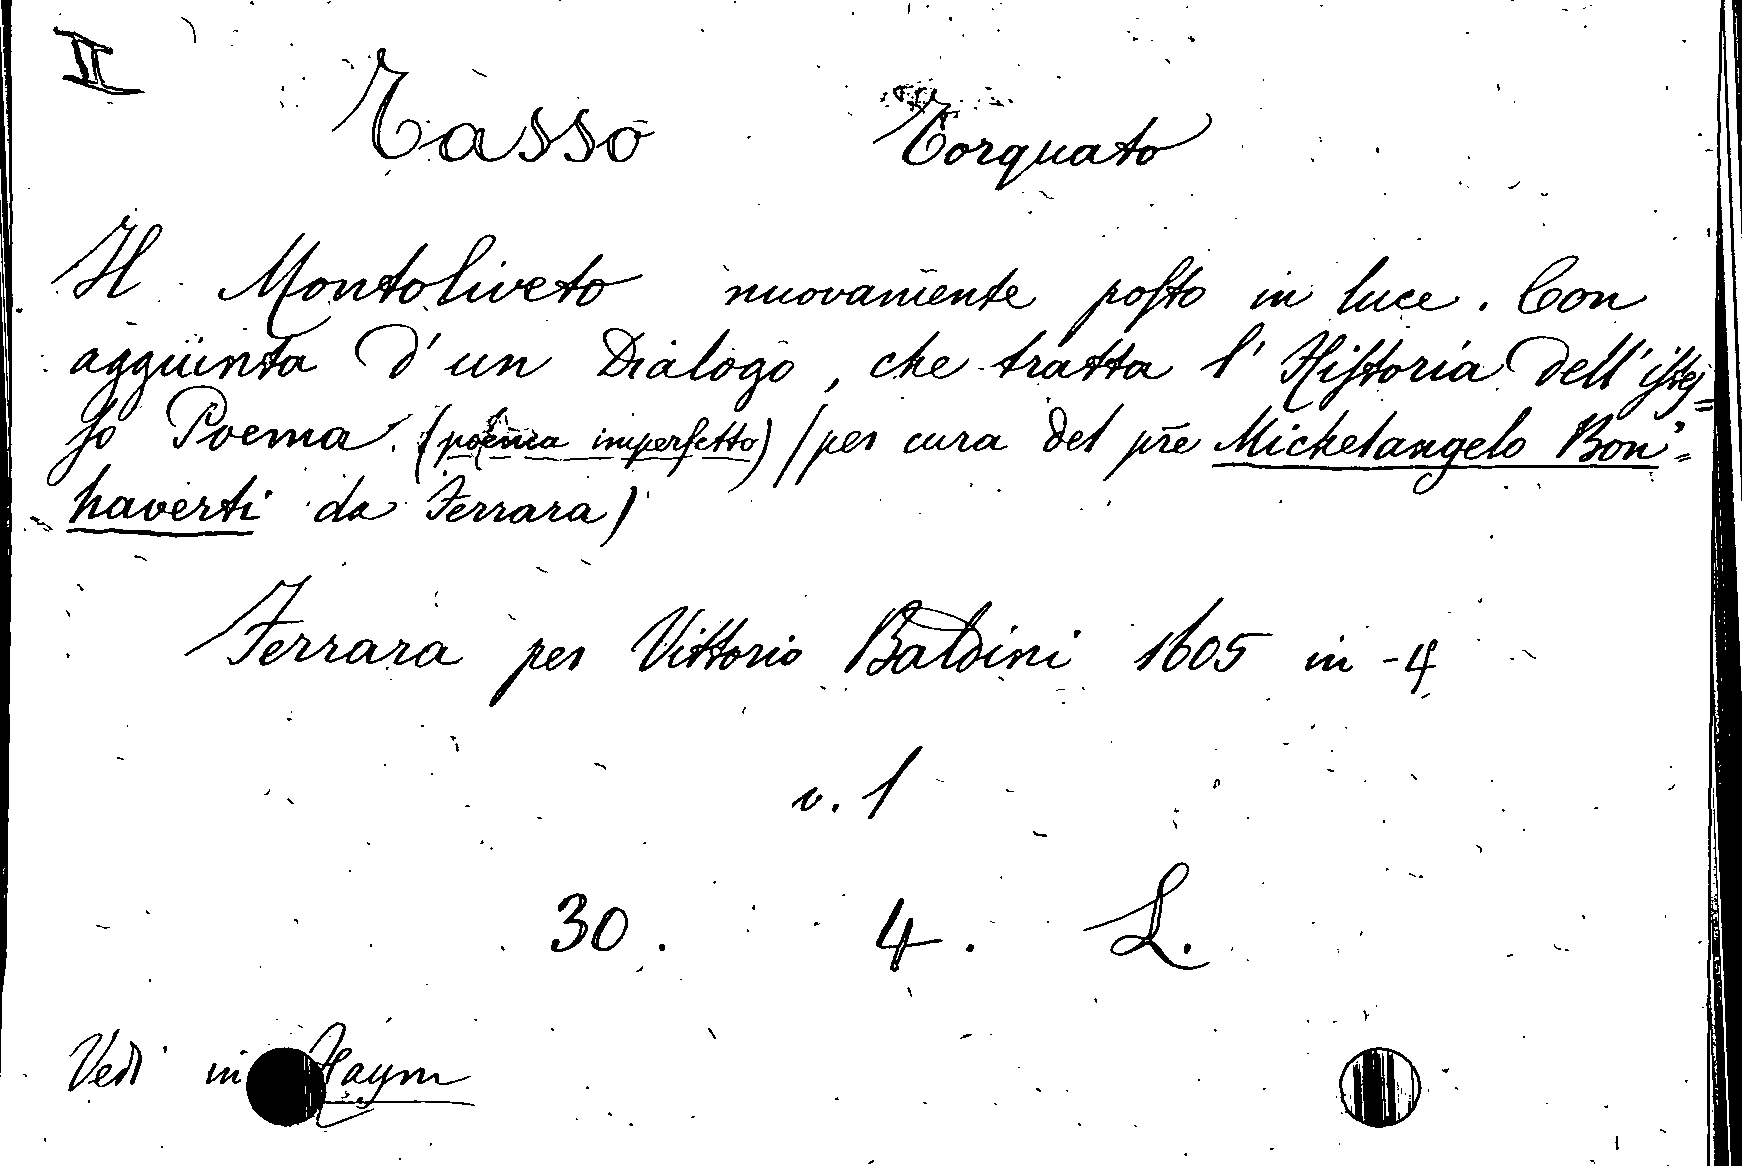 II
Tasso Torquato
Il Montoliveto nuovamente posto in luce. Con
aggiunta d'un Dialogo, che tratta l'Historia dell'istes=
so Poema. (poema imperfetto) (per cura del pre Michelangelo Bon=
haverti da Ferrara)
Ferrara per Vittorio Baldini 1605 in-4
v. 1
30. 4. L.
Vedi in Haym